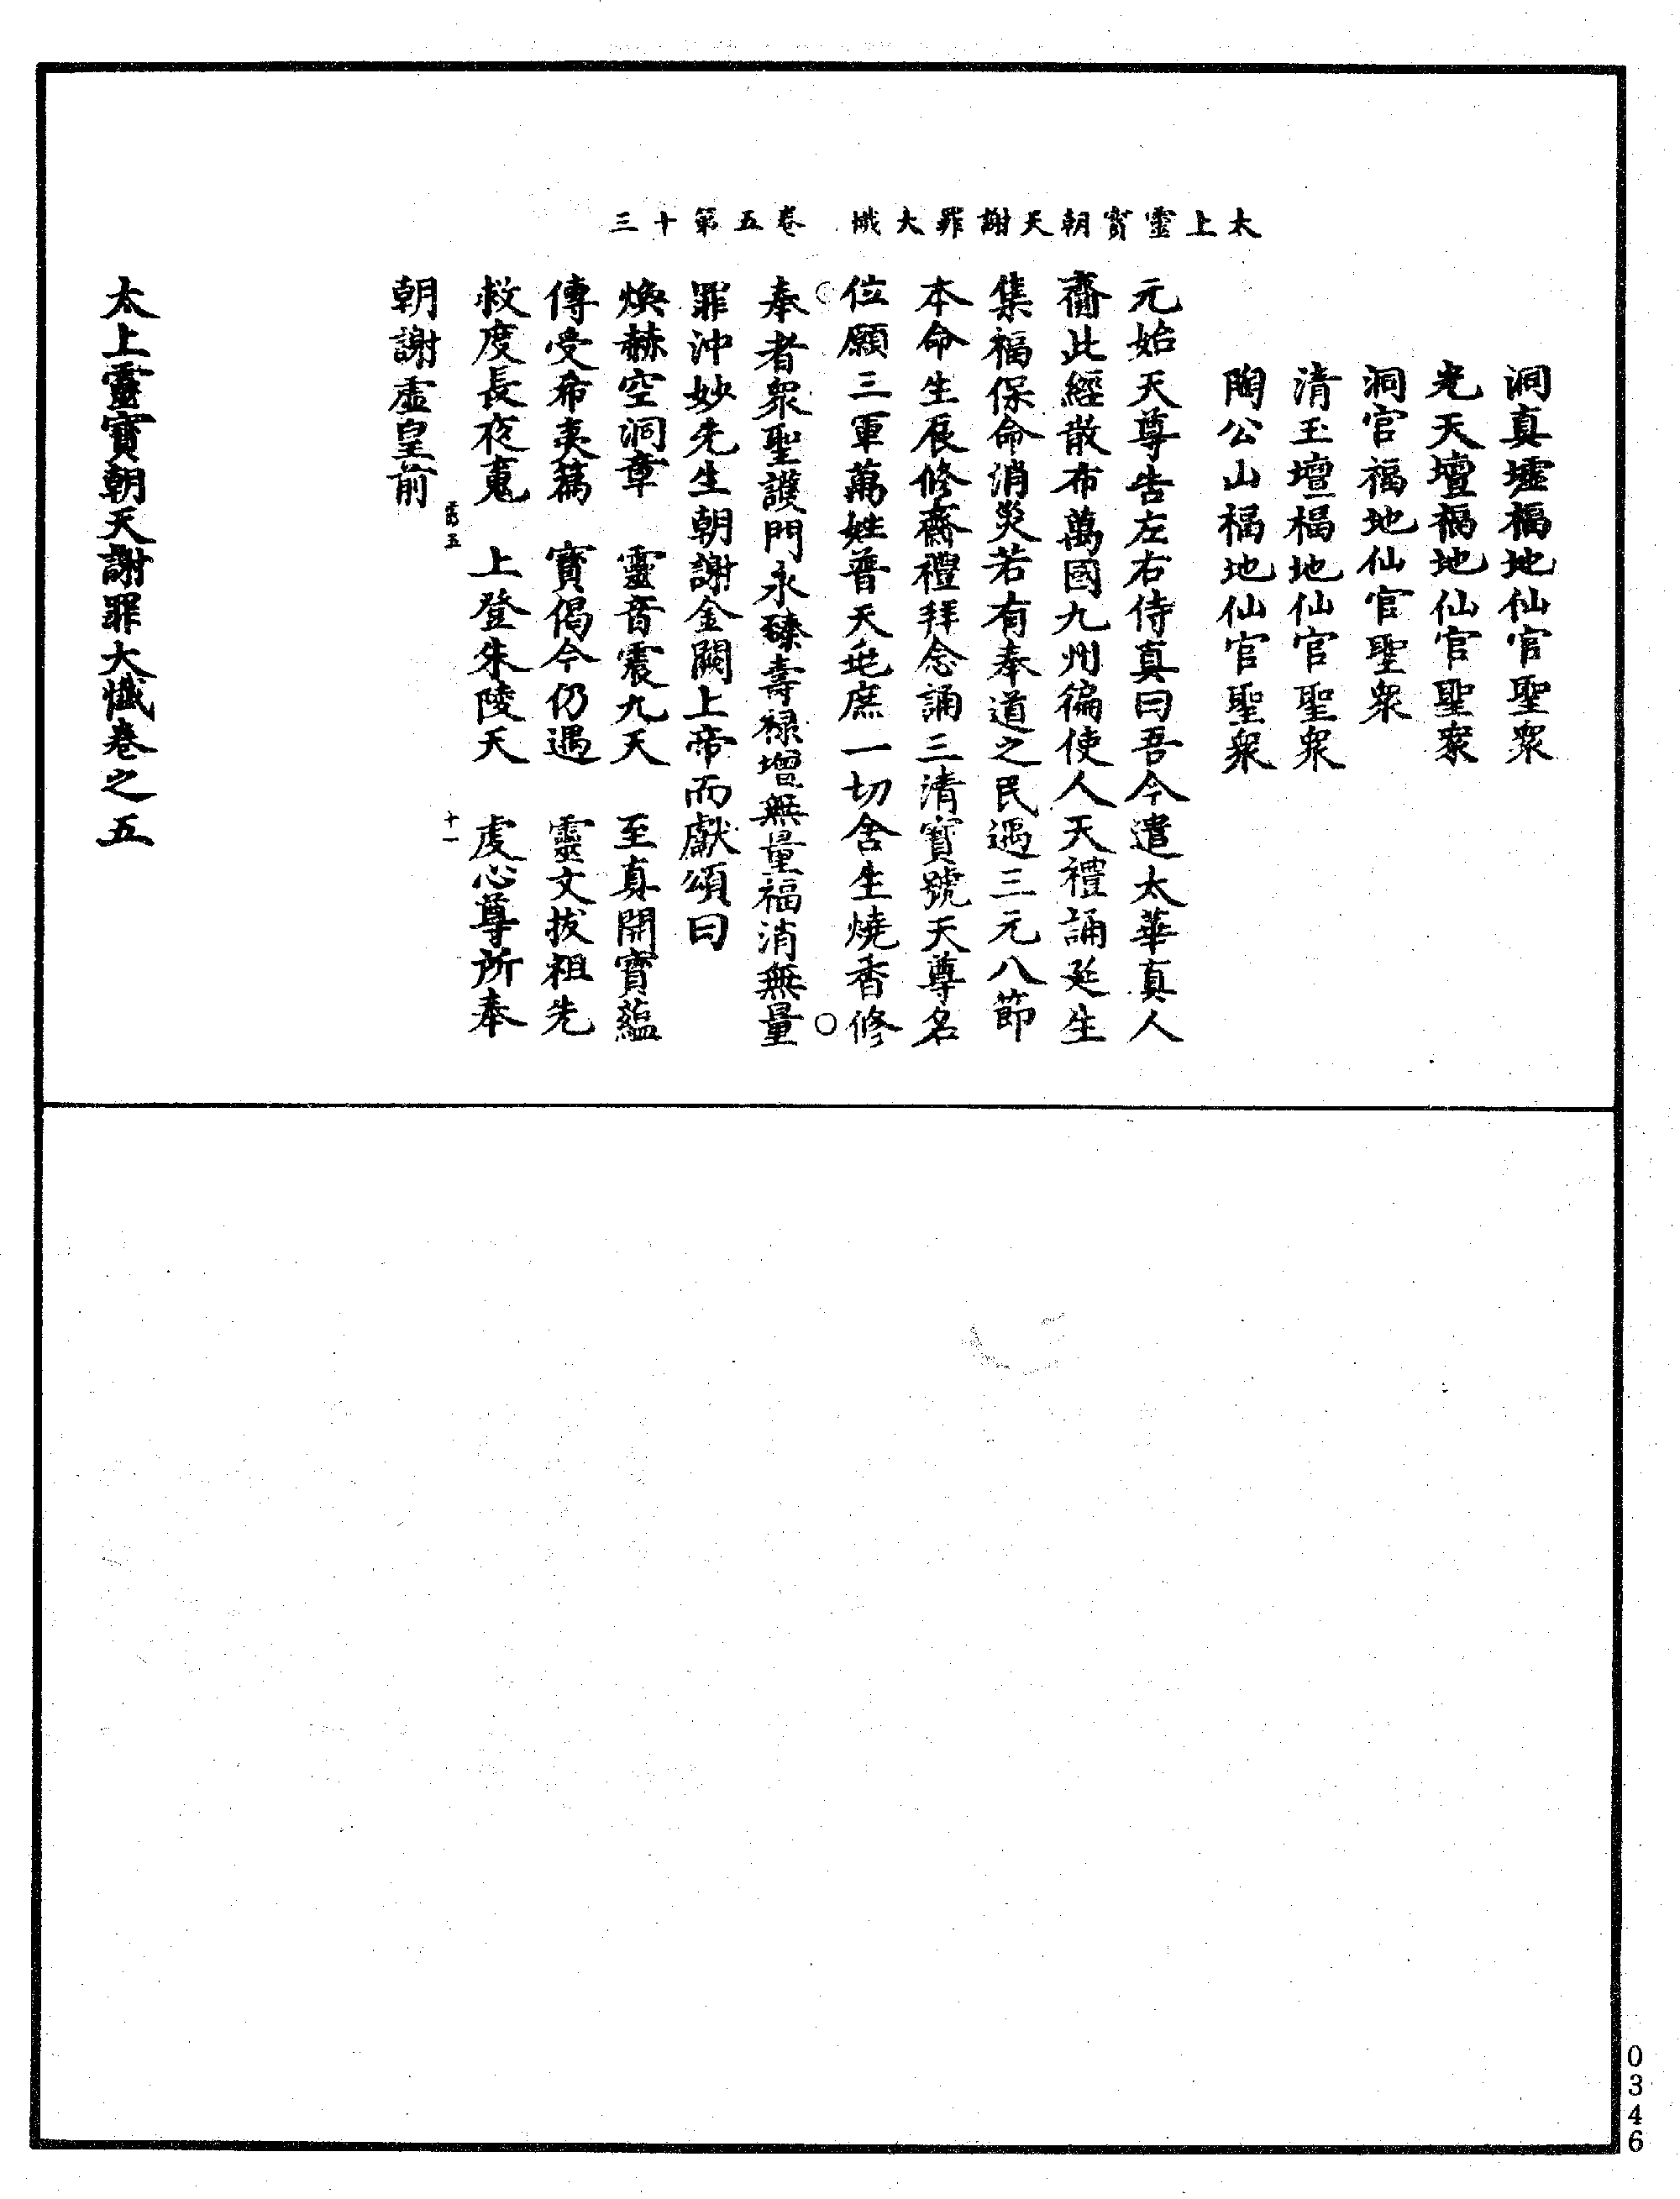 太上靈寶朝天謝罪大懺　卷五第十三
洞真墟福地仙官聖衆
光天壇福地仙官聖衆
洞官福地仙官聖衆
清玉壇福地仙官聖衆
陶公山福地仙官聖衆
元始天尊告左右侍真曰吾今遣太華真人
齎此經散布萬國九州徧使人天禮誦延生
集福保命消災若有奉道之民遇三元八節
本命生辰修齋禮拜念誦三清寶號天尊名
位願三軍萬姓普天甿庶一切含生燒香修
奉者衆聖護門永臻壽祿增無量福消無量
罪沖妙先生朝謝金闕上帝而獻頌曰
煥赫空洞章　靈音震九天　至真開寶蘊
傳受希夷篇　寶偈今仍遇　靈文拔祖先
救度長夜䰟　上登朱陵天　虔心尊所奉
十一
朝謝虛皇前
太上靈寶朝天謝罪大懺卷之五
0346